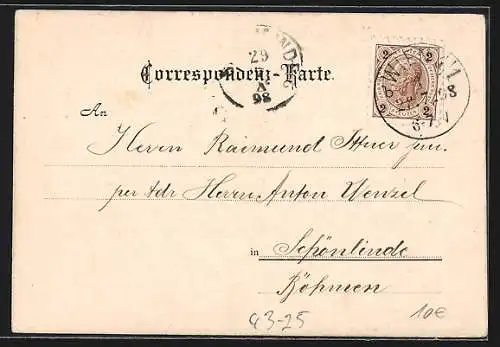 Correspondenz-Karte.
29
A
98
2 2
WIEN
2 2
An
Herrn Raimund Ittner jun.
per adr Herrn Anton Wenzel
in Schönlinde
Böhmen
93-25
10€